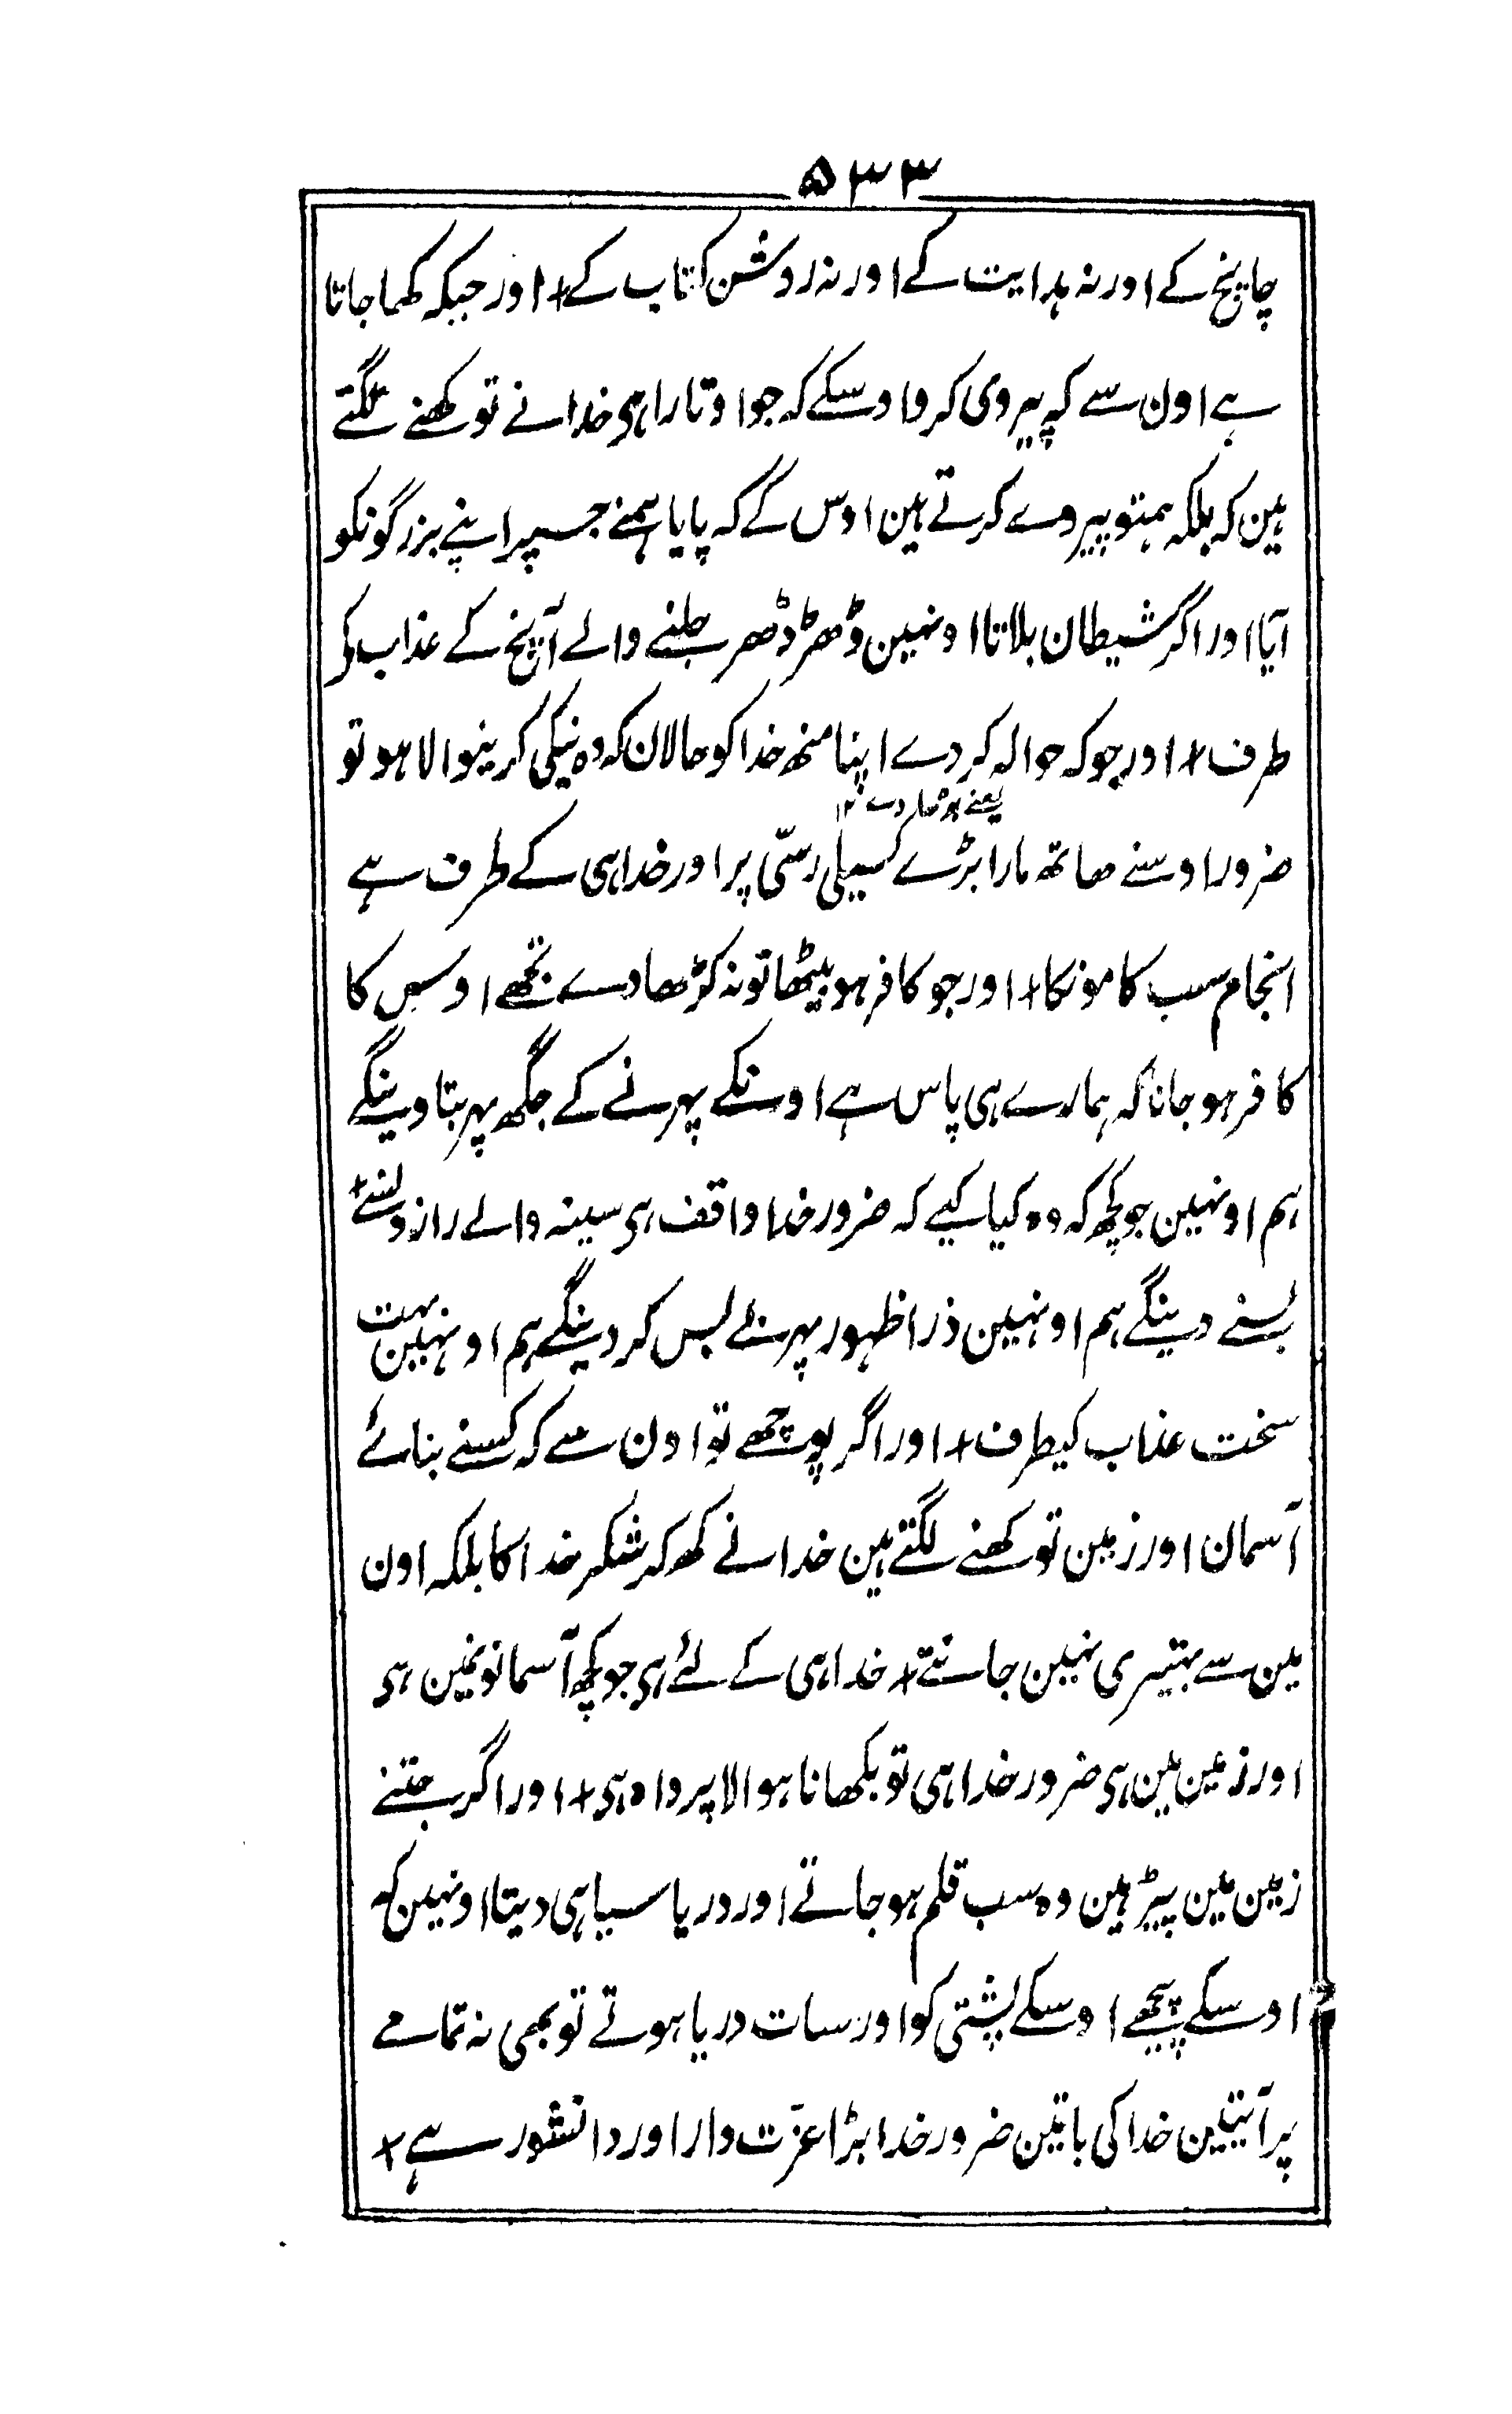 ۵۳۳
جانچ کے اور نہ ہدایت کے اور نہ روشن کتاب کے + اور جبکہ کھا جاتا
ہے اون سے کہ پیروی کرو اوسکے کہ جو اوتارا ہی خدا نے تو کھنے لگتے
ہین کہ بلکہ ہمتو پیروے کرتے ہین اوس کے کہ پایا ہمنے جسپر اپنے بزرگونکو
آیا اور اگر شیطان بلاتا اونہین دھڑ دھڑ جلنے والے آنچ کے عذاب کی
طرف + اور جو کہ حوالہ کر دے اپنا منھ خدا کو حالان کہ وہ نیکی کرینوالا ہو تو
یعنے بڑھا دے ۱۲
ضرور اوسنے ھاتھ مارا بڑے کسیلی رسّی پر اور خدا ہی کے طرف ہے
انجام سب کامونکا + اور جو کافر ہو بیٹھا تو نہ کڑھا دے تجھے اوس کا
کافر ہو جانا کہ ہمارے ہی پاس ہے اونکے پہرنے کے جگھ پہر بتا دینگے
ہم اونہین جو کچھ کہ وہ کیا کیے کہ ضرور خدا واقف ہی سینہ والے رازونسے +
بسنے دینگے ہم اونہین ذرا ظہور پہر بے بس کر دینگے ہم اونہین بہت
سخت عذاب کیطرف + اور اگر پوچھے تو اون سے کہ کسنے بنائے
آسمان اور زمین تو کھنے لگتے ہین خدا نے کھ کر شکر خدا کا بلکہ اون
مین سے بہتیری نہین جانتے + خدا ہی کے لئے ہی جو کچھ آسمانونمین ہی
اور زمین مین ہی ضرور خدا ہی تو بکھانا ہوا لاپرواہ ہی + اور اگر جتنے
زمین مین پیڑ ہین وہ سب قلم ہو جاتے اور دریا سیاہی دیتا اونہین کہ
اوسکے پیچھے اوسکے پشتی کو اور سات دریا ہوتے تو بھی نہ تمامے
پر آتیین خدا کی باتین ضرور خدا بڑا عزّت دار اور دانشور ہے +